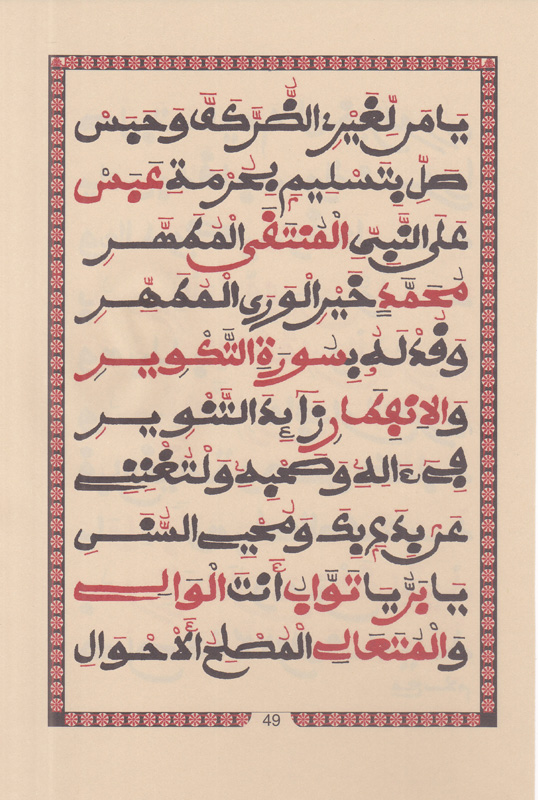 يَا مَن لِّغَيْرِهِ الضُّرَّ كَفَّهُ وَحَبَسْ
صَلِّ بِتَسْلِيمٍ بِحُرْمَةِ عَبَسْ
عَلَى النَّبِيِّ الْمُنْتَقَى الْمُطَهَّرِ
مُحَمَّدٍ خَيْرِ الْوَرَى الْمُطَهَّرِ
وَقُدْ لَهُ بِسُورَةِ التَّكْوِيرِ
وَالِانْفِطَارِ زَائِدَ التَّنْوِيرِ
فِي ءَالِهِ وَصَحْبِهِ وَلْتُغْنِنِي
بِكَ وَمُحْيِي السُّنَنِ
يَا بَرُّ يَا تَوَّابُ أَنْتَ الْوَالِي
وَالْمُتَعَالِي الْمُصْلِحُ الْأَحْوَالِ
49